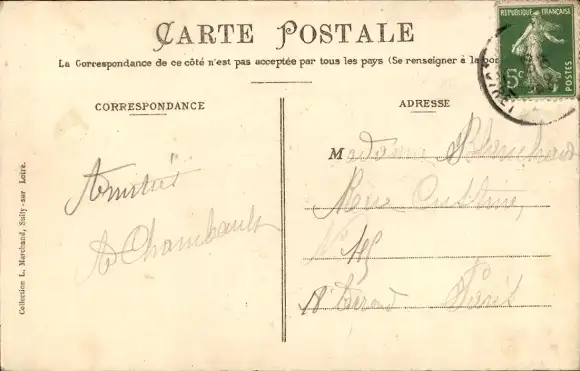 CARTE POSTALE
La Correspondance de ce côté n'est pas acceptée par tous les pays (Se renseigner à la
RÉPUBLIQUE FRANÇAISE
5c
POSTES
CORRESPONDANCE
Amitiés
A Chambault
ADRESSE
Madame Blanchard
Rue Custine,
N°
Paris
Collection L. Marchand, Sully-sur Loire.